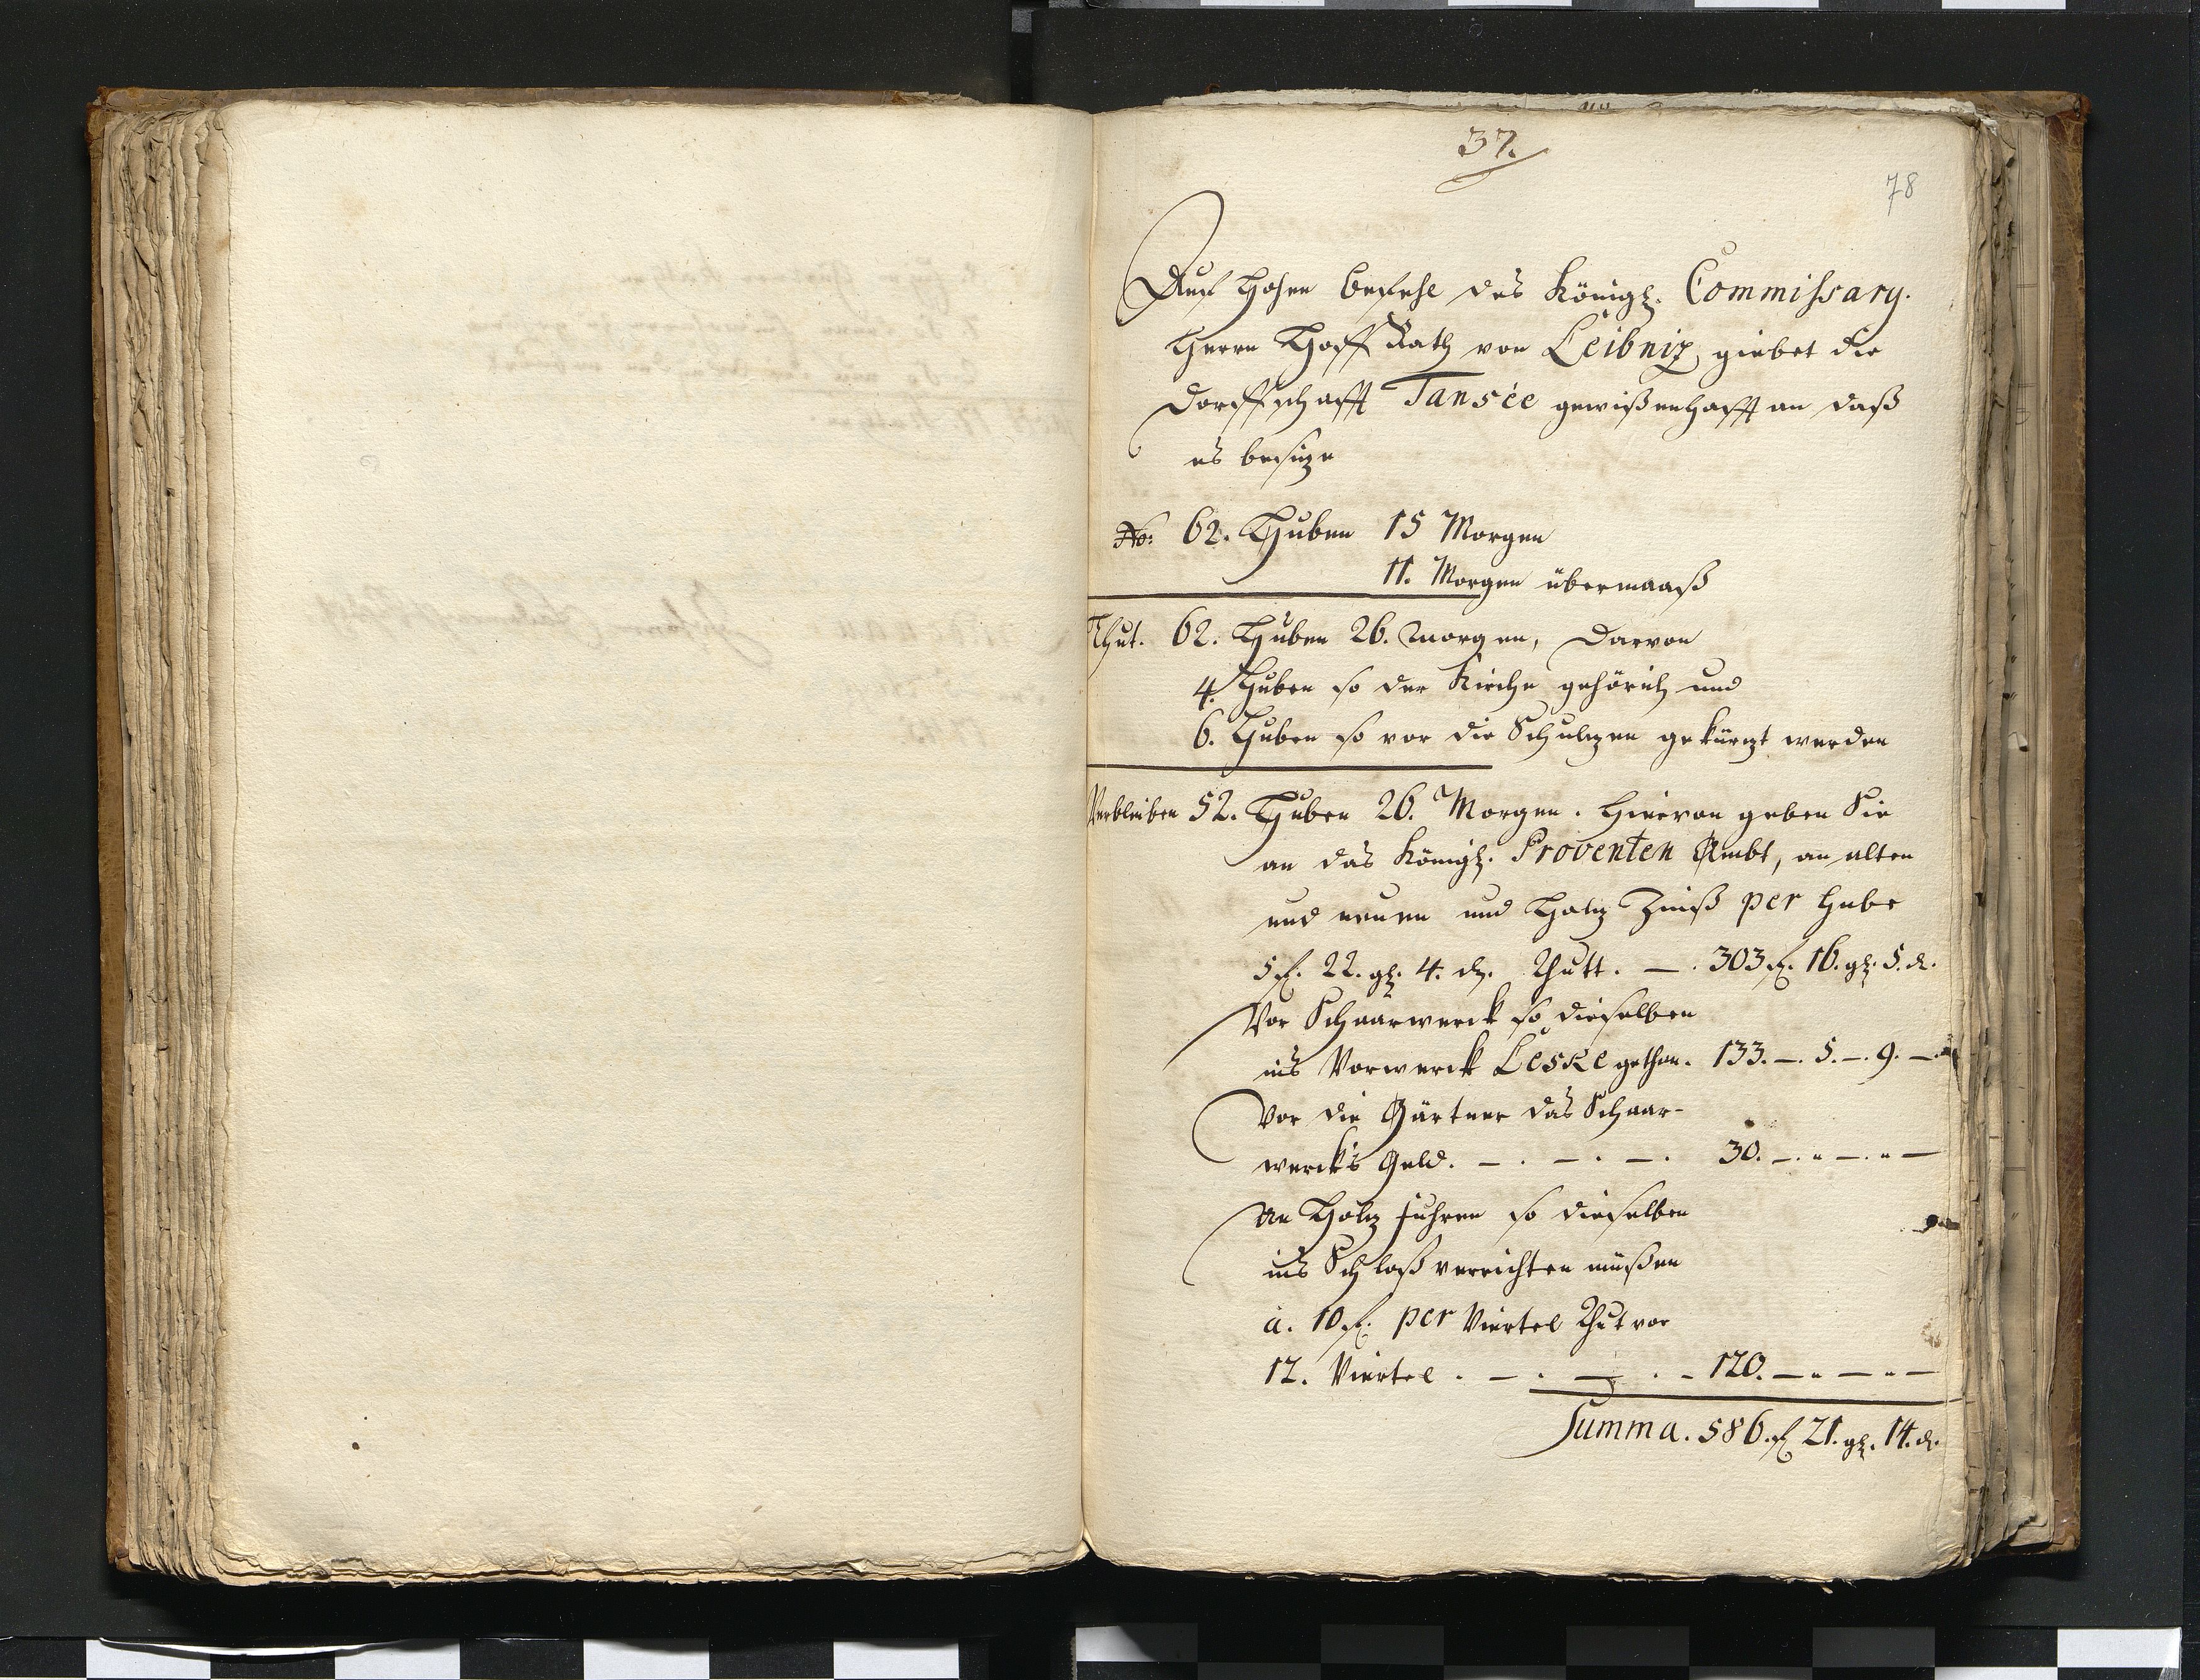 37.
78
Auf Hohen Befehl des Königl. Commissary.
Herrn Hoff Rath von Leibniz, giebet die
Dorffschafft Tansée gewißenhafft an daß
es besitze
No: 62. Huben 15 Morgen
11. Morgen übermaaß
Thut. 62. Huben 26. Morgen, Darvon
4. Huben so der Kirche gehörich und
6. Huben so vor die Schultzen gekürtzt werden
Verbleiben 52. Huben 26. Morgen. Hiervon geben Sie
an das Königl. Proventen Ambt, an alten
und neuen und Holtz Zinß per Hube
5 f. 22. gl. 4. d. Thutt. — . 303 f. 16. gl. 5. d.
Vor Schaarwerck so dieselben
ins Vorwerck Leske gethan. 133. —. 5. —. 9. —
Vor die Gärtner das Schaar-
werck's Geld. — . — . — . 30. —. " —. " —
An Holtz fuhren so dieselben
ins Schloß verrichten müßen
a. 10 f. per Viertel Thut vor
12. Viertel . — . — . - 120. — " — " —
Summa. 586. f 21. gl. 14. d.